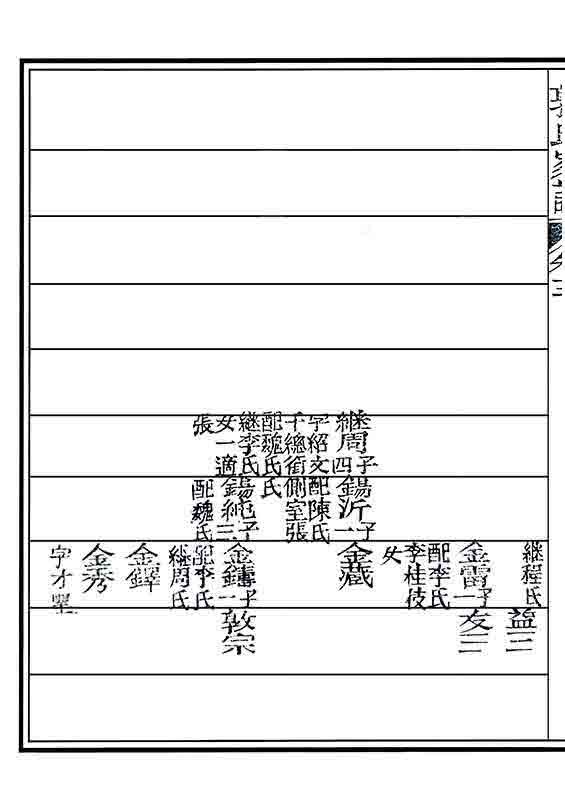 郭氏家譜
卷三
繼周子四
字紹文
千總銜
配魏氏
繼李氏
女一適
張
錫沂子一
配陳氏
側室張
氏
錫純子三
配魏氏
繼程氏
金雷子一
配李氏
李桂
女
金藏
子一
配李氏
繼周氏
金鐸
金秀
字才
益三
友三
敦宗